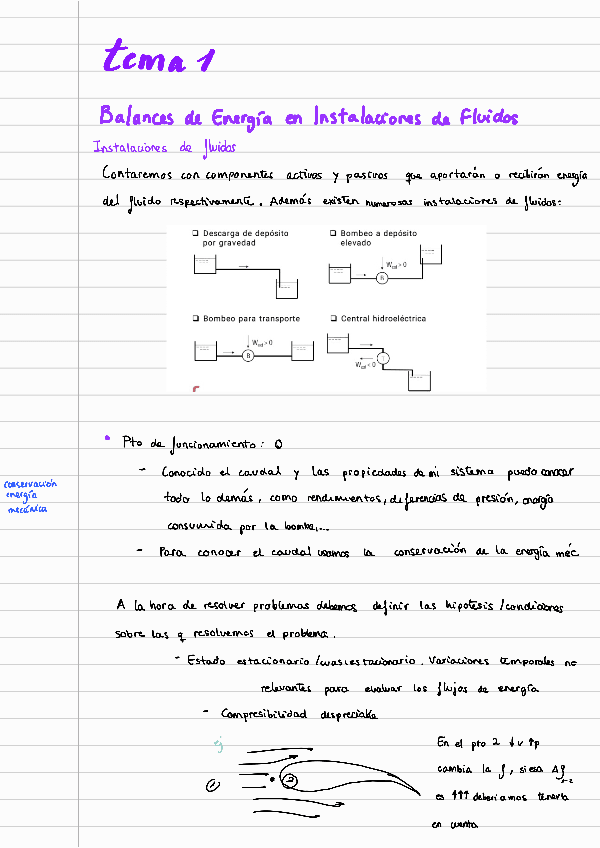 tema 1
Balances de Energía en Instalaciones de Fluidos
Instalaciones de fluidos
Contaremos con componentes activos y pasivos que aportarán o recibirán energía
del fluido respectivamente. Además existen numerosas instalaciones de fluidos:
❑ Descarga de depósito
por gravedad
❑ Bombeo a depósito
elevado
Wext > 0
B
❑ Bombeo para transporte
Wext > 0
B
❑ Central hidroeléctrica
Wext < 0
T
• Pto de funcionamiento: Q
- Conocido el caudal y las propiedades de mi sistema puedo conocer
todo lo demás, como rendimientos, diferencias de presión, energía
consumida por la bomba,...
conservación
energía
mecánica
- Para conocer el caudal usamos la conservación de la energía méc
A la hora de resolver problemas debemos definir las hipotesis/condiciones
sobre las q resolvemos el problema.
- Estado estacionario/cuasiestacionario. Variaciones temporales no
relevantes para evaluar los flujos de energía
- Compresibilidad despreciable
ej
1
2
En el pto 2 ↓v ↑p
cambia la ρ, si esa Δρ
1-2
es ↑↑↑ deberíamos tenerla
en cuenta